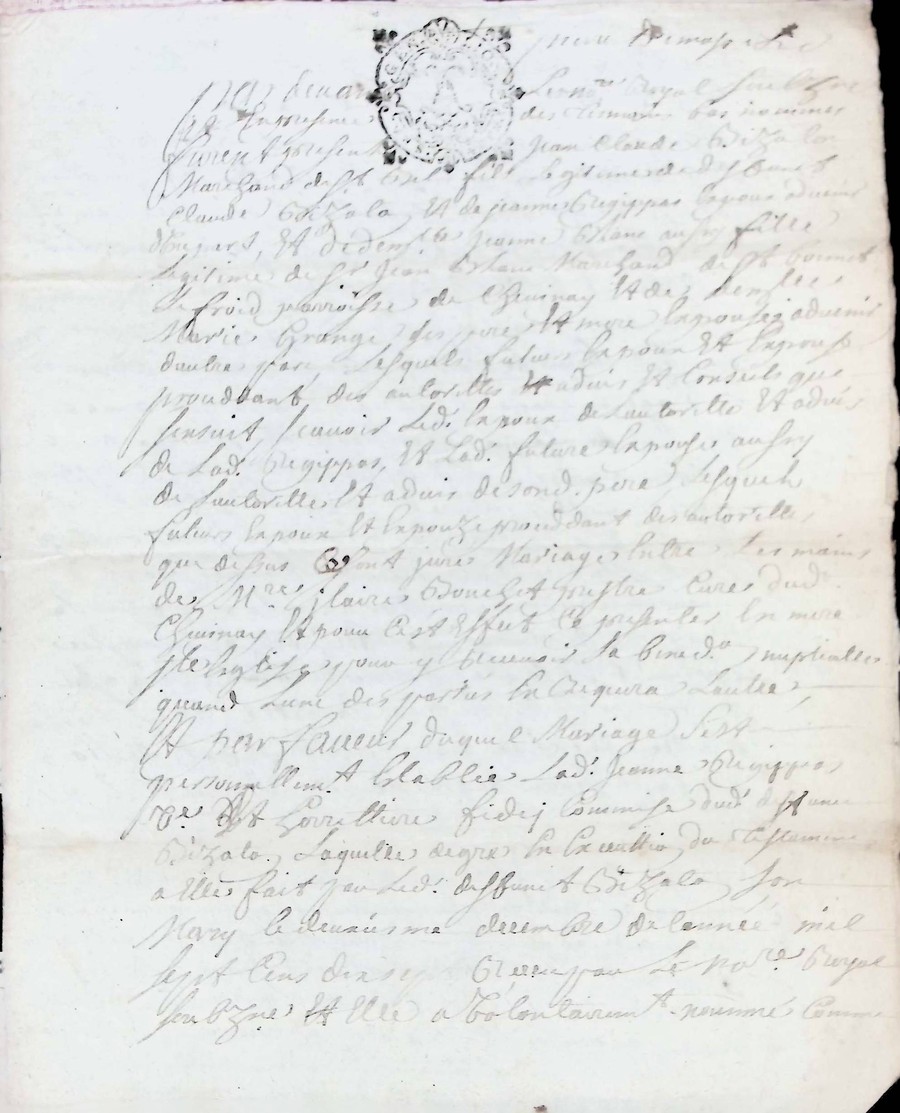 par devant Le no.re Royal soubz.né
Et En presence des temoins bas nommes
furent presents Jean Claude Bizala
Marchand de st fils Legitime de deffunct
Claude Bizala, Et de jeanne Regippas Epoux advenir
d'une part, Et dedem.lle jeanne aussy fille
Legitime de S.r Jean Marchand de st bonnet
Le froid parroisse de Chevinay Et de dem.lle
Marie Grange ses pere Et mere Epouse advenir
dautre part Lesquels futurs Epoux Et Epouse
proceddant des autorittes Et advis Et Conseils que
sensuit, scavoir Led. Epoux de Lautoritté Et advis
de Lad. Regippas, Et Lad. future Epouse aussy
de Lautoritté Et advis de sond. pere Lesquels
futurs Epoux Et Epouze proceddant des autorittes
que dessus ont juré Mariage Entre Les mains
de M.re ilaire Bouchet prestre Curé dud.
Chevinay Et pour cest Effect se presenter En mere
ste Esglize pour y Recevoir La bened.on nuptialle
quand Lune des parties En Requera Lautre,
Et En faveur duquel Mariage sest
personnellem.t Establie Lad. Jeanne Regippas
v.e Et herittiere fideicommise dud. deffunct
Bizala, Laquelle de gré En Execution du Testament
a Elle fait par Led. deffunct Bizala son
Mary le deuxiesme decembre de Lannée mil
sept Cens Receu par Le no.re Royal
soubz.né Et Elle a volontairem.t nommé Comme